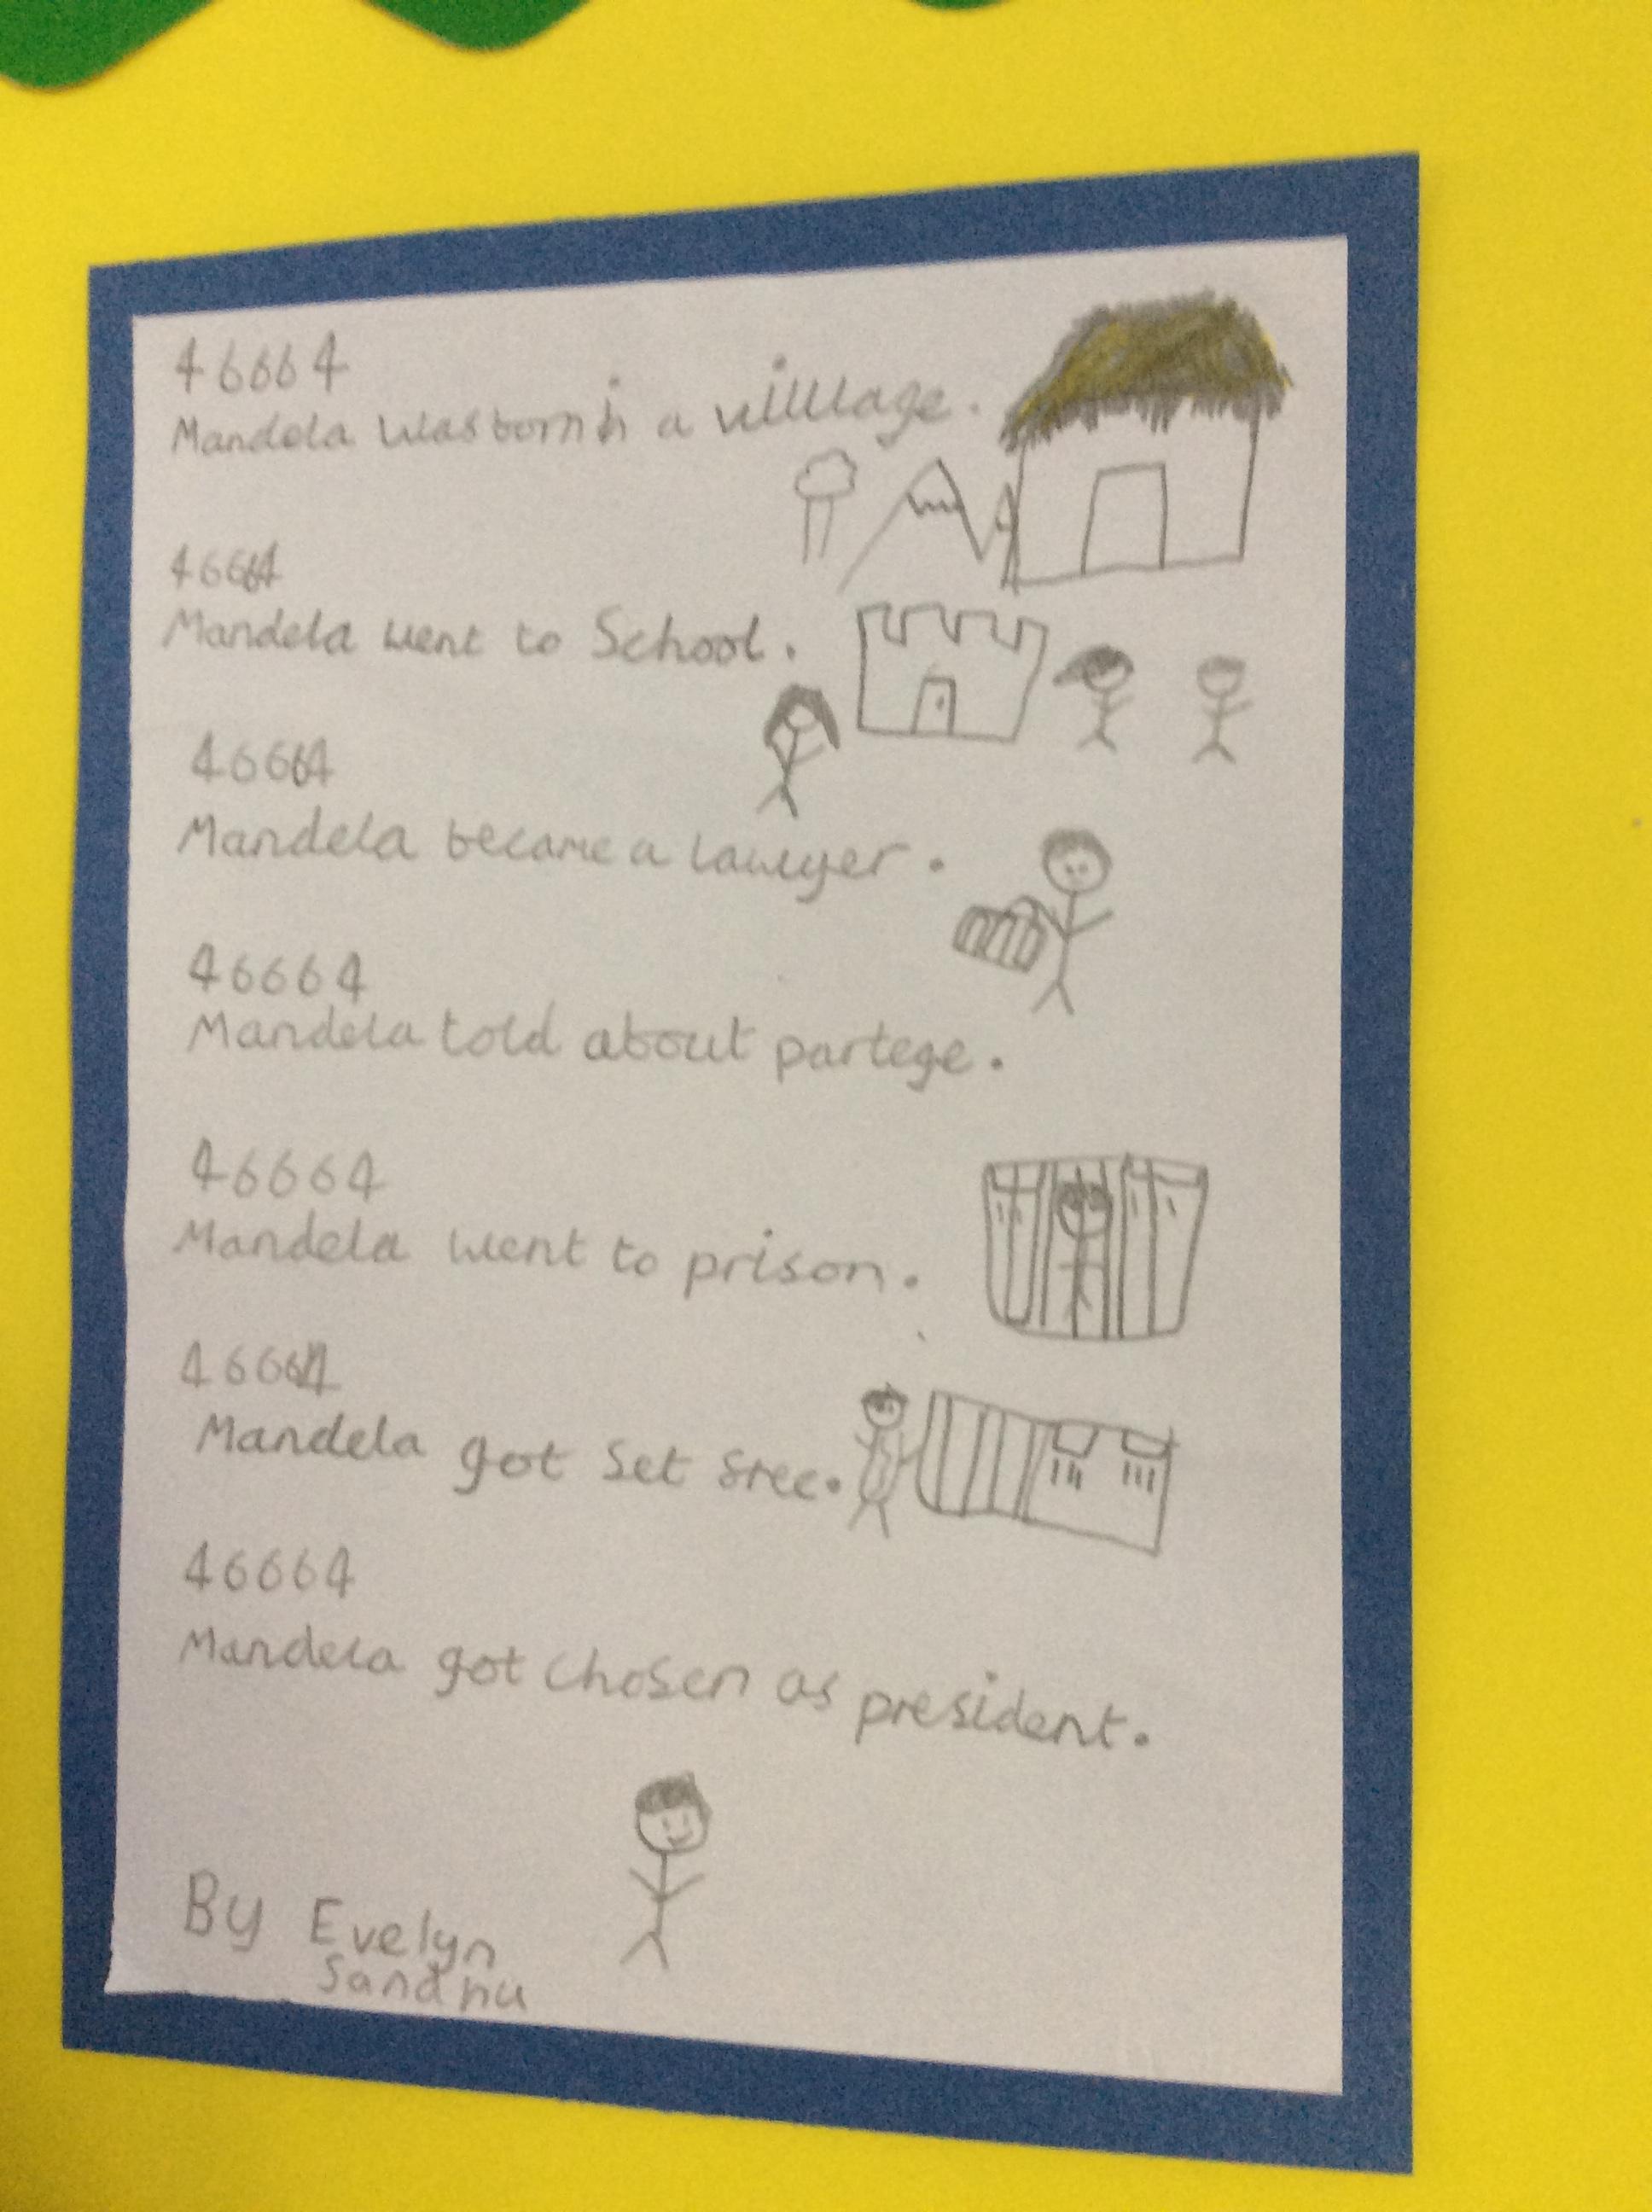 46664
Mandela was born in a villlage.
46664
Mandela went to School.
46664
Mandela became a lawyer.
46664
Mandela told about partege.
46664
Mandela went to prison.
46664
Mandela got set free.
46664
Mandela got chosen as president.
By Evelyn
Sandhu